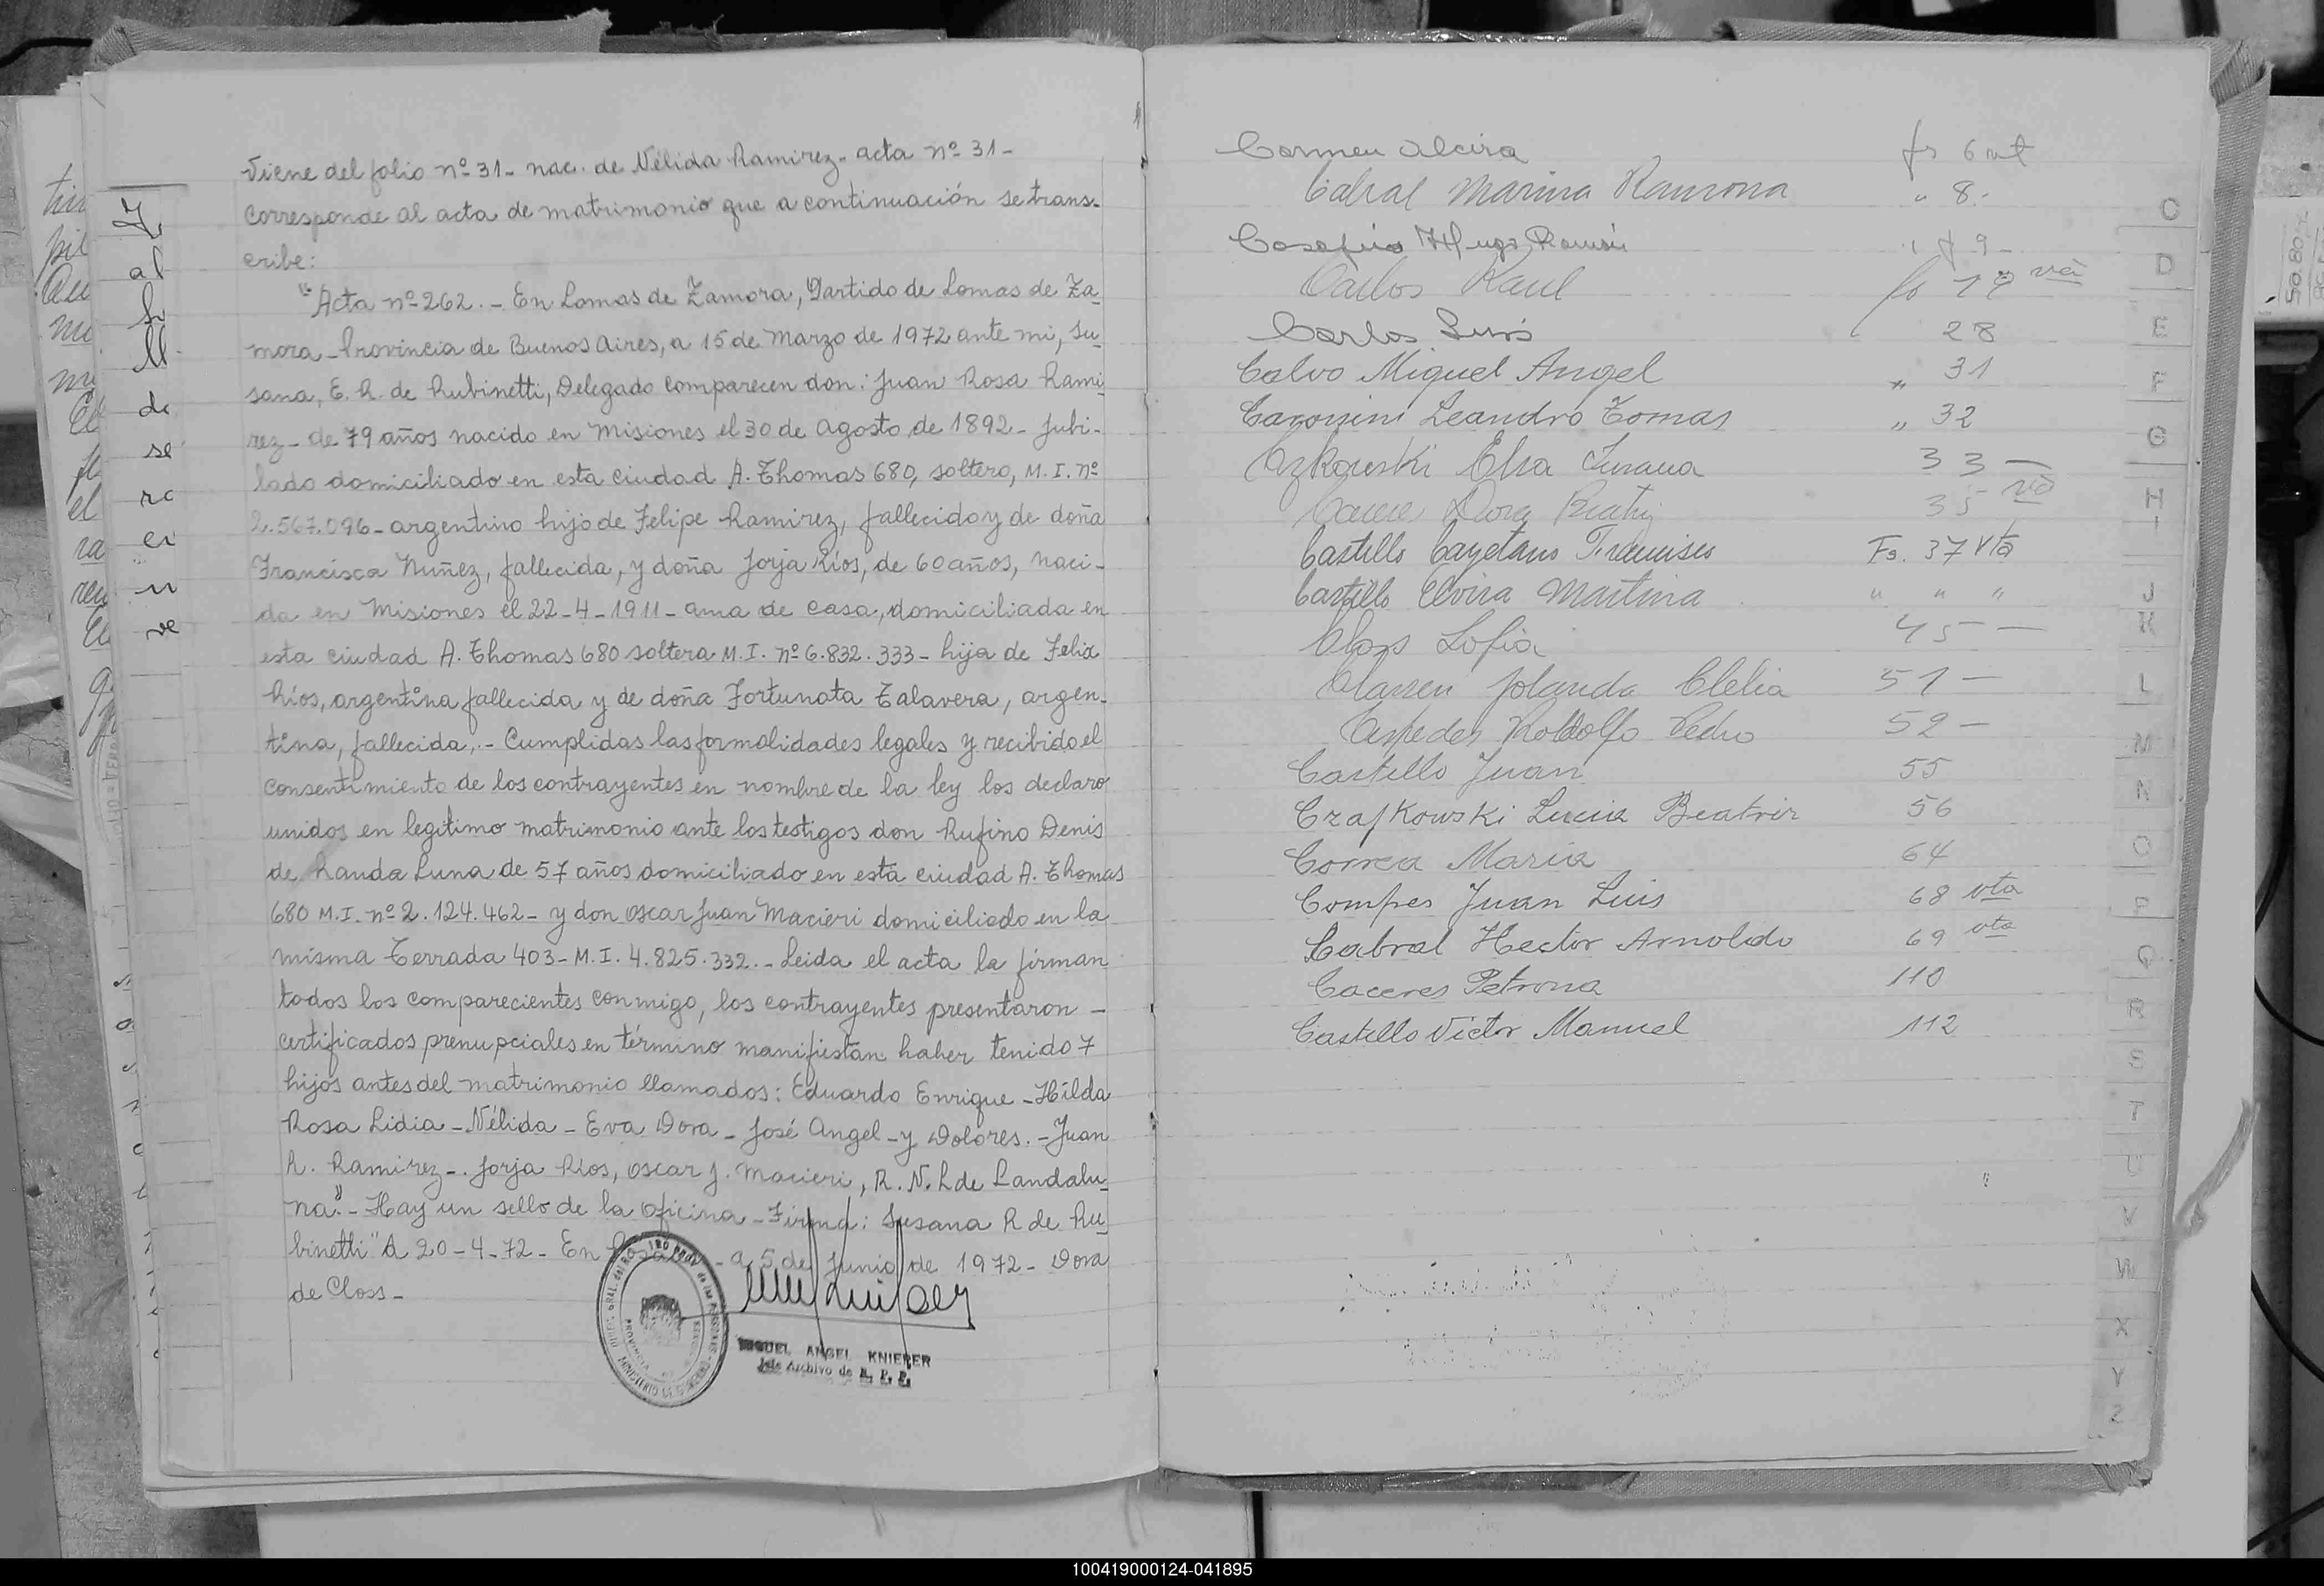 Viene del folio nº 31- nac. de Nélida Ramirez- acta nº 31-
Corresponde al acta de matrimonio que a continuación se trans-
cribe:
"Acta nº 262.- En Lomas de Zamora, Partido de Lomas de Za-
mora - Provincia de Buenos Aires, a 15 de Marzo de 1972 ante mi, Su-
sana, E. R. de Rubinetti, Delegado comparecen don: Juan Rosa Rami-
rez - de 79 años nacido en Misiones el 30 de agosto de 1892 - Jubi-
lado domiciliado en esta ciudad A. Thomas 680, soltero, M. I. nº
2.567.096 - argentino hijo de Felipe Ramirez, fallecido y de doña
Francisca Nuñez, fallecida, y doña Jorja Ríos, de 60 años, naci-
da en Misiones el 22-4-1911 - ama de casa, domiciliada en
esta ciudad A. Thomas 680 soltera M. I. nº 6.832.333 - hija de Felix
Ríos, argentina fallecida y de doña Fortunata Talavera, argen-
tina, fallecida,.- Cumplidas las formalidades legales y recibido el
consentimiento de los contrayentes en nombre de la ley los declaro
unidos en legitimo matrimonio ante los testigos don Rufino Denis
de Landa Luna de 57 años domiciliado en esta ciudad A. Thomas
680 M. I. nº 2.124.462 - y don Oscar Juan Macieri domiciliado en la
misma Terrada 403 - M. I. 4.825.332.- Leida el acta la firman
todos los comparecientes conmigo, los contrayentes presentaron -
certificados prenupciales en término manifiestan haber tenido 7
hijos antes del matrimonio llamados: Eduardo Enrique - Hilda
Rosa Lidia - Nélida - Eva Dora - José Angel - y Dolores.- Juan
R. Ramirez -. Jorja Ríos, Oscar J. Macieri, R. N. L de Landalu-
na".- Hay un sello de la oficina - Firma: Susana R de Ru-
binetti" A 20-4-72 - En - a 5 de Junio de 1972 - Dora
de Closs -
MIGUEL ANGEL KNIEPER
Jefe Archivo de R. P. P.
Carmen Alcira fs 6 vt
Cabral Marina Ramona " 8.-
Hugo Ramón 9-
Carlos Raul fs vta
Carlos Luis 28
Calvo Miguel Angel " 31
Leandro Tomas " 32
Elsa Susana 33 -
Dora Beatriz 35 vta
Castillo Cayetano Francisco Fs. 37 vta
Castillo Elvira Martina " " "
Closs Sofia 45 -
Jolanda Clelia 51 -
Cespedes Rodolfo Pedro 52 -
Castillo Juan 55
Czajkowski Lucia Beatriz 56
Correa Maria 64
Compes Juan Luis 68 vta
Cabral Hector Arnoldo 69 vta
Caceres Petrona 110
Castillo Victor Manuel 112
C
D
E
F
G
H
I
J
K
L
M
N
O
P
Q
R
S
T
U
V
W
X
Y
Z
100419000124-041895